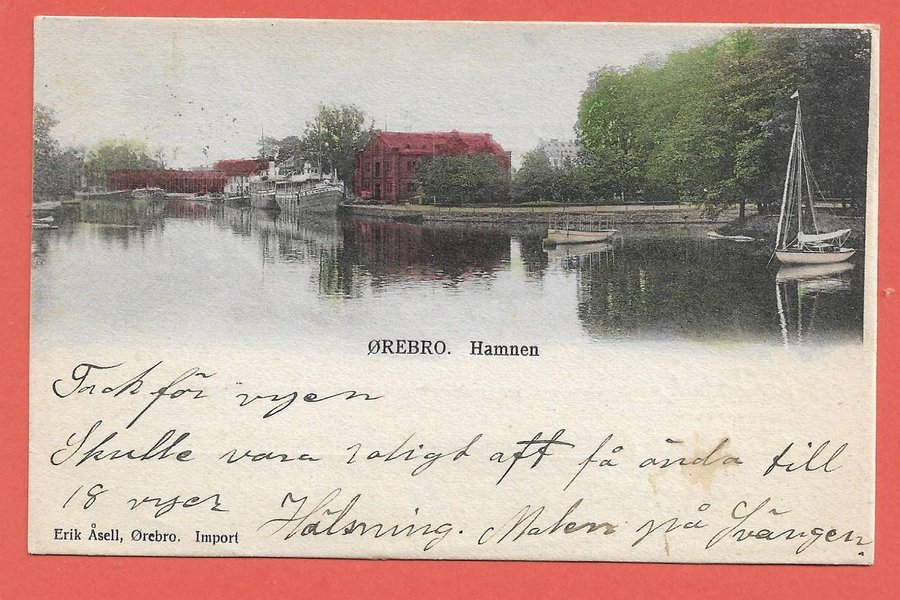 ØREBRO. Hamnen
Tack för vyen
Skulle vara roligt att få ända till
18 vyer Hälsning. Malen på
Erik Åsell, Ørebro. Import